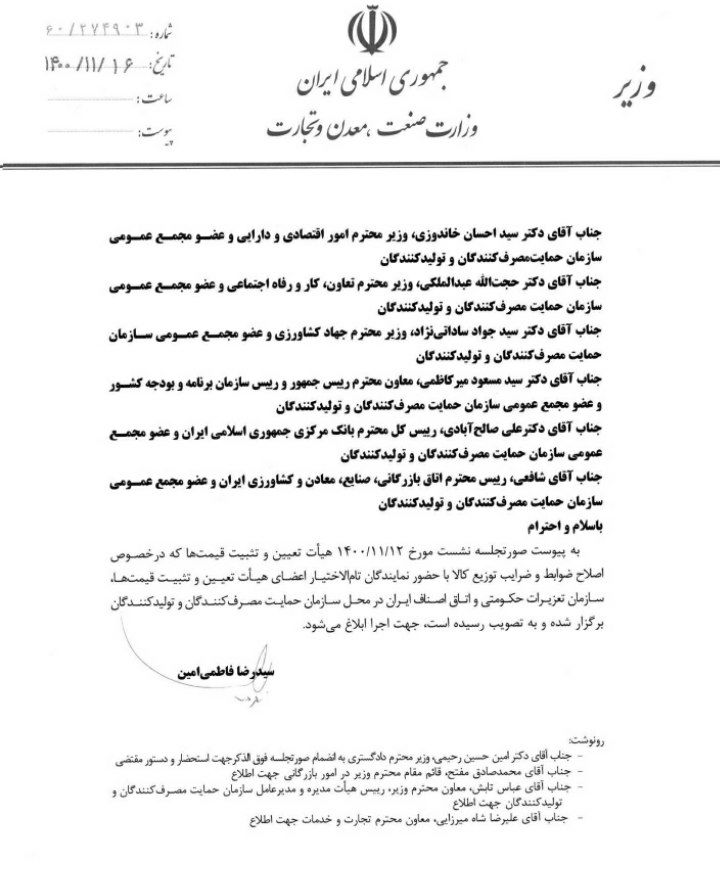 شماره: ۶۰/۲۷۴۹۰۳
تاریخ: ۱۴۰۰/۱۱/۱۶
ساعت:
پیوست:
جمهوری اسلامی ایران
وزارت صنعت، معدن و تجارت
وزیر
جناب آقای دکتر سید احسان خاندوزی، وزیر محترم امور اقتصادی و دارایی و عضو مجمع عمومی
سازمان حمایت‌مصرف‌کنندگان و تولیدکنندگان
جناب آقای دکتر حجت‌الله عبدالملکی، وزیر محترم تعاون، کار و رفاه اجتماعی و عضو مجمع عمومی
سازمان حمایت مصرف‌کنندگان و تولیدکنندگان
جناب آقای دکتر سید جواد ساداتی‌نژاد، وزیر محترم جهاد کشاورزی و عضو مجمع عمومی سازمان
حمایت مصرف‌کنندگان و تولیدکنندگان
جناب آقای دکتر سید مسعود میرکاظمی، معاون محترم رییس جمهور و رییس سازمان برنامه و بودجه کشور
و عضو مجمع عمومی سازمان حمایت مصرف‌کنندگان و تولیدکنندگان
جناب آقای دکترعلی صالح‌آبادی، رییس کل محترم بانک مرکزی جمهوری اسلامی ایران و عضو مجمع
عمومی سازمان حمایت مصرف‌کنندگان و تولیدکنندگان
جناب آقای شافعی، رییس محترم اتاق بازرگانی، صنایع، معادن و کشاورزی ایران و عضو مجمع عمومی
سازمان حمایت مصرف‌کنندگان و تولیدکنندگان
باسلام و احترام
به پیوست صورتجلسه نشست مورخ ۱۴۰۰/۱۱/۱۲ هیأت تعیین و تثبیت قیمت‌ها که درخصوص
اصلاح ضوابط و ضرایب توزیع کالا با حضور نمایندگان تام‌الاختیار اعضای هیأت تعیین و تثبیت قیمت‌ها،
سازمان تعزیرات حکومتی و اتاق اصناف ایران در محل سازمان حمایت مصرف‌کنندگان و تولیدکنندگان
برگزار شده و به تصویب رسیده است، جهت اجرا ابلاغ می‌شود.
سیدرضا فاطمی‌امین
رونوشت:
- جناب آقای دکتر امین حسین رحیمی، وزیر محترم دادگستری به انضمام صورتجلسه فوق الذکرجهت استحضار و دستور مقتضی
- جناب آقای محمدصادق مفتح، قائم مقام محترم وزیر در امور بازرگانی جهت اطلاع
- جناب آقای عباس تابش، معاون محترم وزیر، رییس هیأت مدیره و مدیرعامل سازمان حمایت مصرف‌کنندگان و
تولیدکنندگان جهت اطلاع
- جناب آقای علیرضا شاه میرزایی، معاون محترم تجارت و خدمات جهت اطلاع